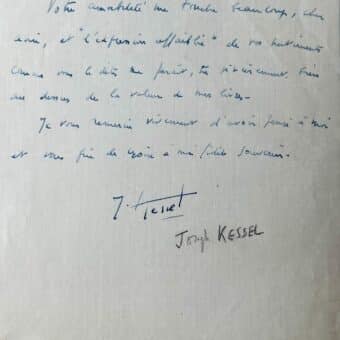 Votre amabilité me touche beaucoup, cher
ami, et "l'expression affaiblie" de vos sentiments
comme vous le dites me paraît, très sincèrement, bien
au dessus de la valeur de mes livres.
Je vous remercie vivement d'avoir pensé à moi
et vous prie de croire à mon fidèle souvenir.
J. Kessel
Joseph KESSEL